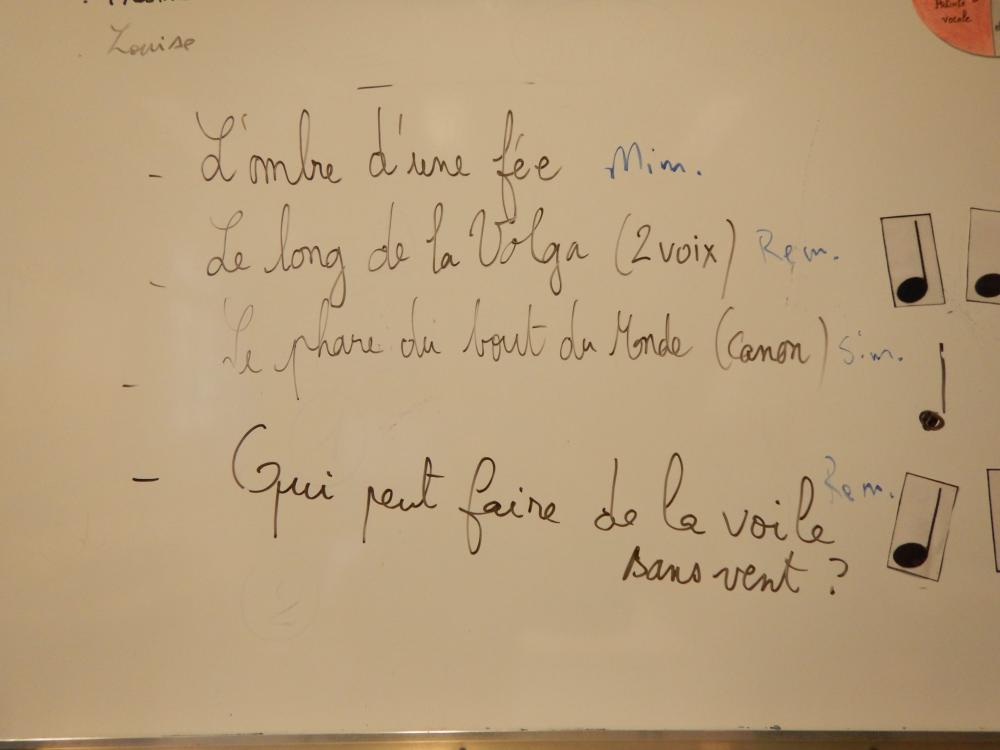 Louise
vocale
- L'ombre d'une fée Mim.
- Le long de la Volga (2 voix) Rem.
- Le phare du bout du Monde (canon) Sim.
- Qui peut faire de la voile Rem.
sans vent ?